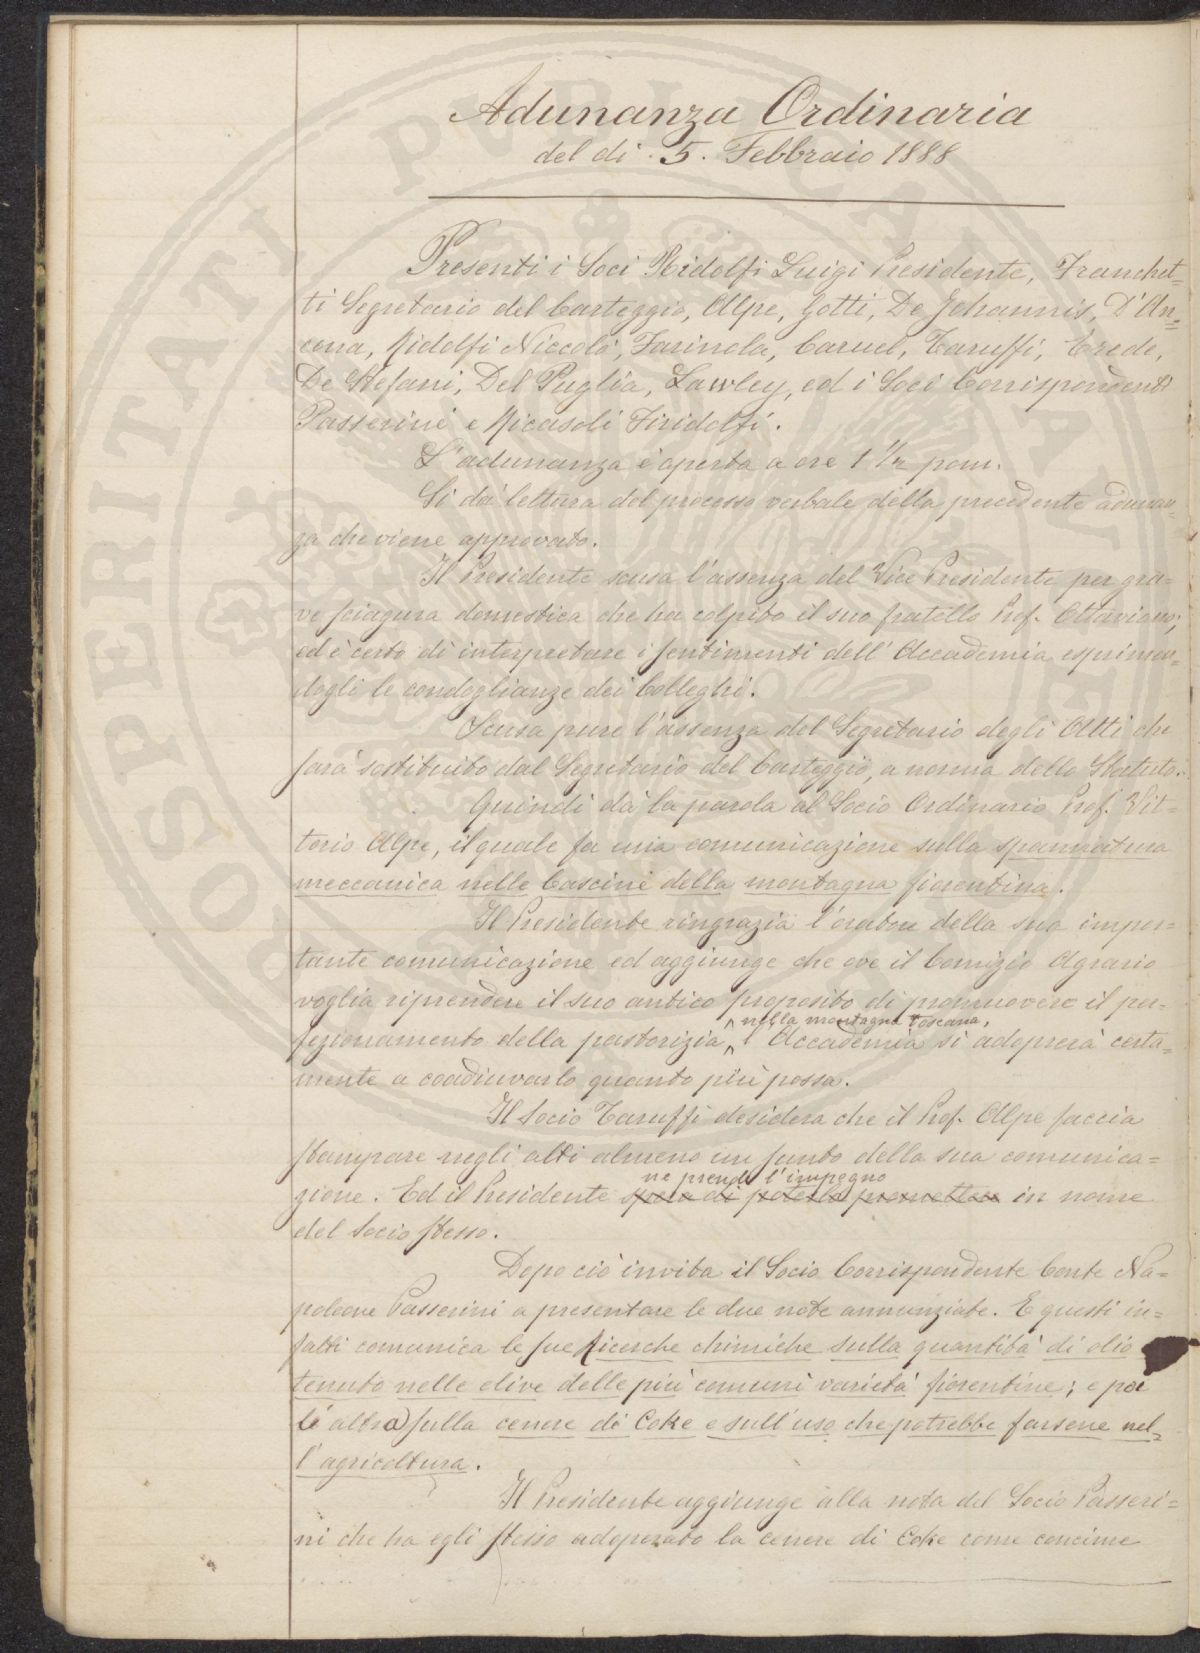 Adunanza Ordinaria
del dì . 5 . Febbraio 1888
Presenti i Soci Ridolfi Luigi Presidente, Franchet=
ti Segretario del Carteggio, Alpe, Gotti, De Johannis, D'An=
cona, Ridolfi Niccolò, Farinola, Caruel, Taruffi, Erede,
De Stefani, Del Puglia, Lawley, ed i Soci Corrispondenti
Passerini e Ricasoli Firidolfi.
L'adunanza è aperta a ore 1 1/2 pom.
Si dà lettura del processo verbale della precedente adunan=
za che viene approvato.
Il Presidente scusa l'assenza del Vice Presidente per gra=
ve sciagura domestica che ha colpito il suo fratello Prof. Ottaviano;
ed è certo di interpretare i sentimenti dell'Accademia esprimen=
dogli le condoglianze dei Colleghi.
Scusa pure l'assenza del Segretario degli Atti che
sarà sostituito dal Segretario del Carteggio, a norma dello Statuto.
Quindi dà la parola al Socio Ordinario Prof. Vit=
torio Alpe, il quale fa una comunicazione sulla spannatura
meccanica nelle Cascine della montagna fiorentina.
Il Presidente ringrazia l'oratore della sua impor=
tante comunicazione ed aggiunge che ove il Comizio Agrario
voglia riprendere il suo antico proposito di promuovere il per=
nella montagna Toscana,
fezionamento della pastorizia, l'Accademia si adoprerà certa=
mente a coadiuvarlo quanto più possa.
Il Socio Taruffi desidera che il Prof. Alpe faccia
stampare negli atti almeno un sunto della sua comunica=
ne prende l'impegno
zione. Ed il Presidente spera di poterlo promettere in nome
del Socio stesso.
Dopo ciò invita il Socio Corrispondente Conte Na=
poleone Passerini a presentare le due note annunziate. E questi in=
fatti comunica le sue Ricerche chimiche sulla quantità di olio
tenuto nelle olive delle più comuni varietà fiorentine; e poi
l'altra sulla cenere di Coke e sull'uso che potrebbe farsene nel=
l'agricoltura.
Il Presidente aggiunge alla nota del Socio Passeri=
ni che ha egli stesso adoperato la cenere di Coke come concime
PROSPERITATI PUBLICAE AUGENDAE